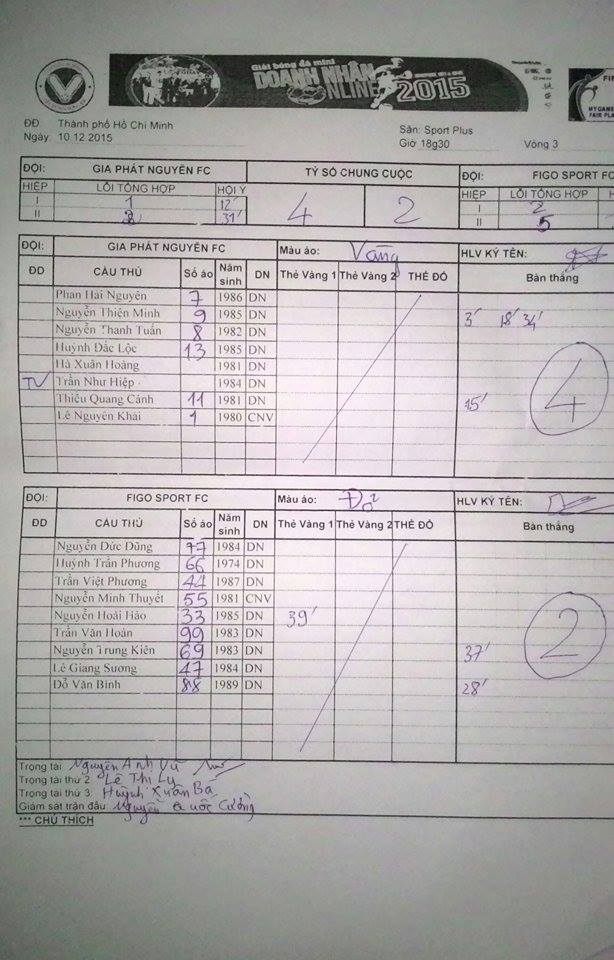 Giải bóng đá mini
DOANH NHÂN
ONLINE 2015
FIN
MYGAME
FAIR PLA
ĐĐ Thành phố Hồ Chí Minh
Sân: Sport Plus
Ngày. 10.12.2015
Giờ 18g30 Vòng 3
ĐỘI: GIA PHÁT NGUYÊN FC TỶ SỐ CHUNG CUỘC ĐỘI: FIGO SPORT FC
HIỆP LỖI TỔNG HỢP HỘI Ý 4 2 HIỆP LỖI TỔNG HỢP H
I 1 12' I 2
II 31' II 5
ĐỘI: GIA PHÁT NGUYÊN FC Màu áo: Vàng HLV KÝ TÊN:
ĐD CẦU THỦ Số áo Năm sinh DN Thẻ Vàng 1 Thẻ Vàng 2 THẺ ĐỎ Bàn thắng
Phan Hải Nguyên 7 1986 DN
Nguyễn Thiện Minh 9 1985 DN 3' 18' 34'
Nguyễn Thanh Tuấn 8 1982 DN
Huỳnh Đắc Lộc 13 1985 DN
Hà Xuân Hoàng 1981 DN
TV Trần Như Hiệp 1984 DN 4
Thiều Quang Cảnh 11 1981 DN 15'
Lê Nguyên Khải 1 1980 CNV
ĐỘI: FIGO SPORT FC Màu áo: Đỏ HLV KÝ TÊN:
ĐD CẦU THỦ Số áo Năm sinh DN Thẻ Vàng 1 Thẻ Vàng 2 THẺ ĐỎ Bàn thắng
Nguyễn Đức Dũng 77 1984 DN
Huỳnh Trấn Phương 66 1974 DN
Trần Việt Phương 44 1987 DN
Nguyễn Minh Thuyết 55 1981 CNV
Nguyễn Hoài Hảo 33 1985 DN 39'
Trần Văn Hoàn 99 1983 DN 2
Nguyễn Trung Kiên 69 1983 DN 37'
Lê Giang Sương 47 1984 DN
Đỗ Văn Bình 88 1989 DN 28'
Trọng tài Nguyễn Anh Vũ
Trọng tài thứ 2: Lê Thị Ly
Trọng tài thứ 3: Huỳnh Xuân Bá
Giám sát trận đấu: Nguyễn Quốc Cường
*** CHÚ THÍCH